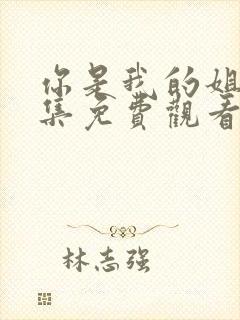 你是我的姐
集免費觀看
林志强